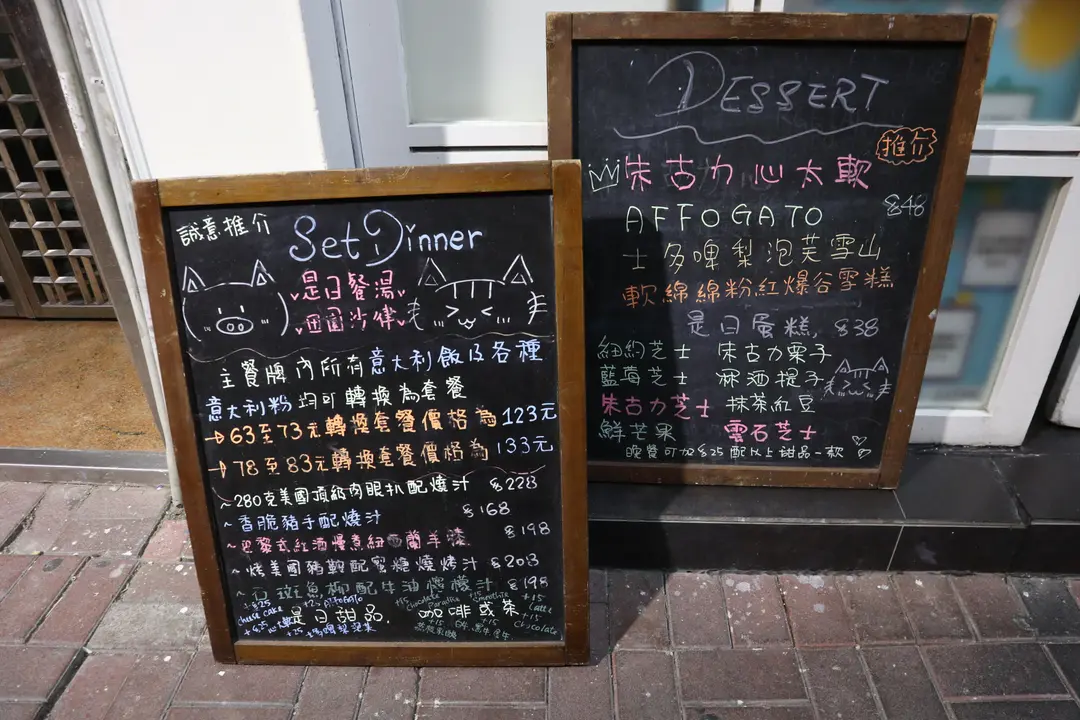 誠意推介
Set Dinner
是日餐湯
田園沙律
主餐牌內所有意大利飯及各種
意大利粉均可轉換為套餐
→63至73元轉換套餐價格為123元
→78至83元轉換套餐價格為133元
~280克美國頂級肉眼扒配燒汁 $228
~香脆豬手配燒汁 $168
~巴黎式紅酒慢煮紐西蘭羊膝 $198
~烤美國豬鞍配蜜糖燒烤汁 $208
~石斑魚柳配牛油檸檬汁 $198
是日甜品 咖啡或茶
cheese cake
AFFOGATO
+15 Chocolate
Paradise
+15 Smoothie
+15 Latte
+15 Chocolate
DESSERT
推介
朱古力心太軟
AFFOGATO $48
士多啤梨泡芙雪山
軟綿綿粉紅爆谷雪糕
是日蛋糕 $38
紐約芝士 朱古力栗子
藍莓芝士 冧酒提子
朱古力芝士 抹茶紅豆
鮮芒果 雲石芝士
晚餐可加$25配以上甜品一款